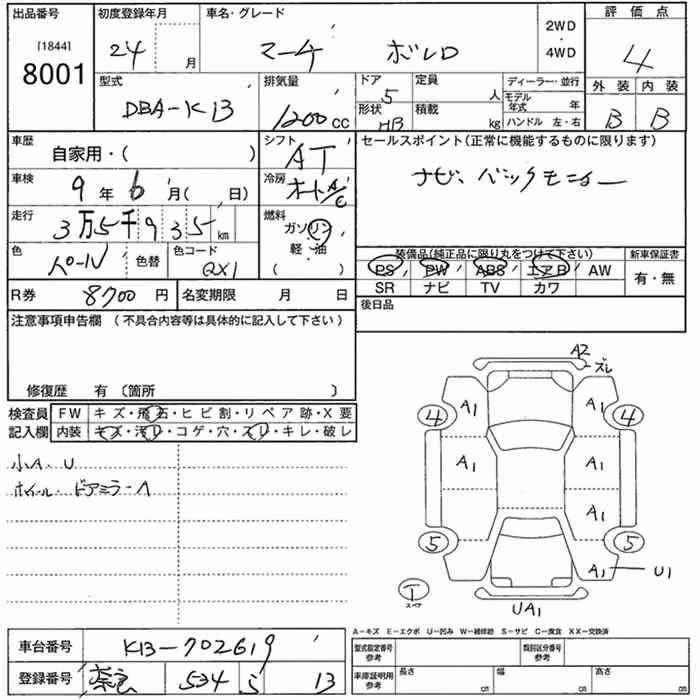 出品番号 初度登録年月 車名・グレード 2WD・4WD 評価点
[1844] 8001 24 月 マーチ ボレロ 4
型式 排気量 ドア 定員 ディーラー・並行 外装 内装
DBA-K13 1200 CC 5 人 モデル年式 年 B B
形状 積載 ハンドル 左・右
HB kg
車歴 シフト セールスポイント(正常に機能するものに限ります)
自家用・( ) AT ナビ、バックモニター
車検 冷房
9 年 6 月( 日) オートA/C
走行 燃料
3万5千935 km ガソリン
軽・油
( )
色 色替 色コード 装備品(純正品に限り丸をつけて下さい) 新車保証書
パール QX1 PS PW ABS エアB AW 有・無
SR ナビ TV カワ
R券 8700 円 名変期限 月 日 後日品
注意事項申告欄(不具合内容等は具体的に記入して下さい)
修復歴 有〔箇所 〕
検査員 FW キズ・飛石・ヒビ割・リペア跡・X要
記入欄 内装 キズ・汚レ・コゲ・穴・スレ・キレ・破レ
小A・U
ホイール・ドアミラーA
A2
ズレ
4 A1 A1 4
A1 A1
A1
5 5
A1 U1
T
スペア
UA1
A-キズ E-エクボ U-凹み W-補修跡 S-サビ C-腐食 XX-交換済
車台番号 K13-702619 型式指定番号 参考 類別区分番号 参考
登録番号 奈良 534 さ 13 車庫証明用 参考 長さ cm 幅 cm 高さ cm